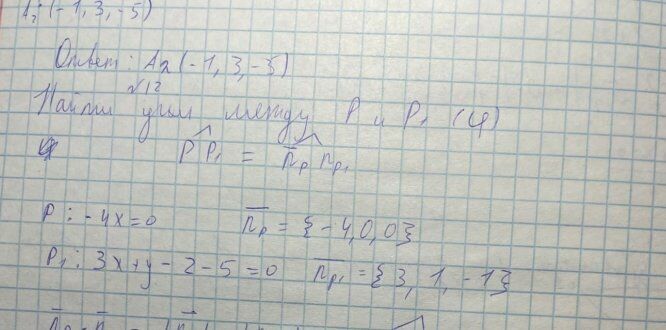 A₂: (-1, 3, -5)
Ответ: A₂ (-1, 3, -5)
√12
Найти угол между P и P₁ (φ)
P P₁ = n̅ₚ n̅ₚ₁
P: -4x=0 n̅ₚ = {-4,0,0}
P₁: 3x+y-z-5=0 n̅ₚ₁ = {3, 1, -1}